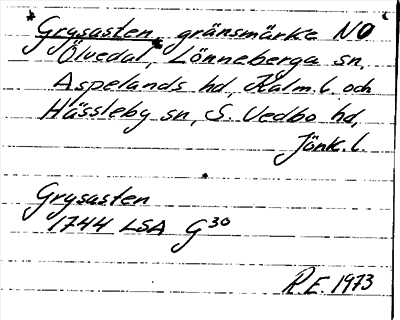 *Grysasten, gränsmärke NO
Ölvedal, Lönneberga sn,
Aspelands hd, Kalm. l. och
Hässleby sn, S. Vedbo hd,
Jönk. l.
Grysasten
1744 LSA G30
R.E. 1973